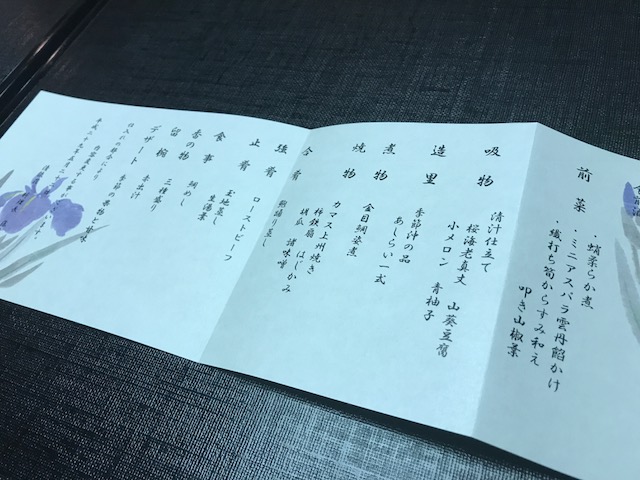 前菜
・蛸柔らか煮
・ミニアスパラ雲丹餡かけ
・幟打ち筍からすみ和え
叩き山椒葉
吸物
清汁仕立て
桜海老真丈 山葵豆腐
小メロン 青柚子
造里
季節沖の品
あしらい一式
煮物
金目鯛姿煮
焼物
カマス上州焼き
杵鉄扇 はじかみ
胡瓜 諸味噌
合肴
鮑踊り蒸し
強肴
ローストビーフ
止肴
玉地蒸し
食事
鯛めし
生湯葉
香の物
三種盛り
留椀
赤出汁
デザート
季節の果物と甘味